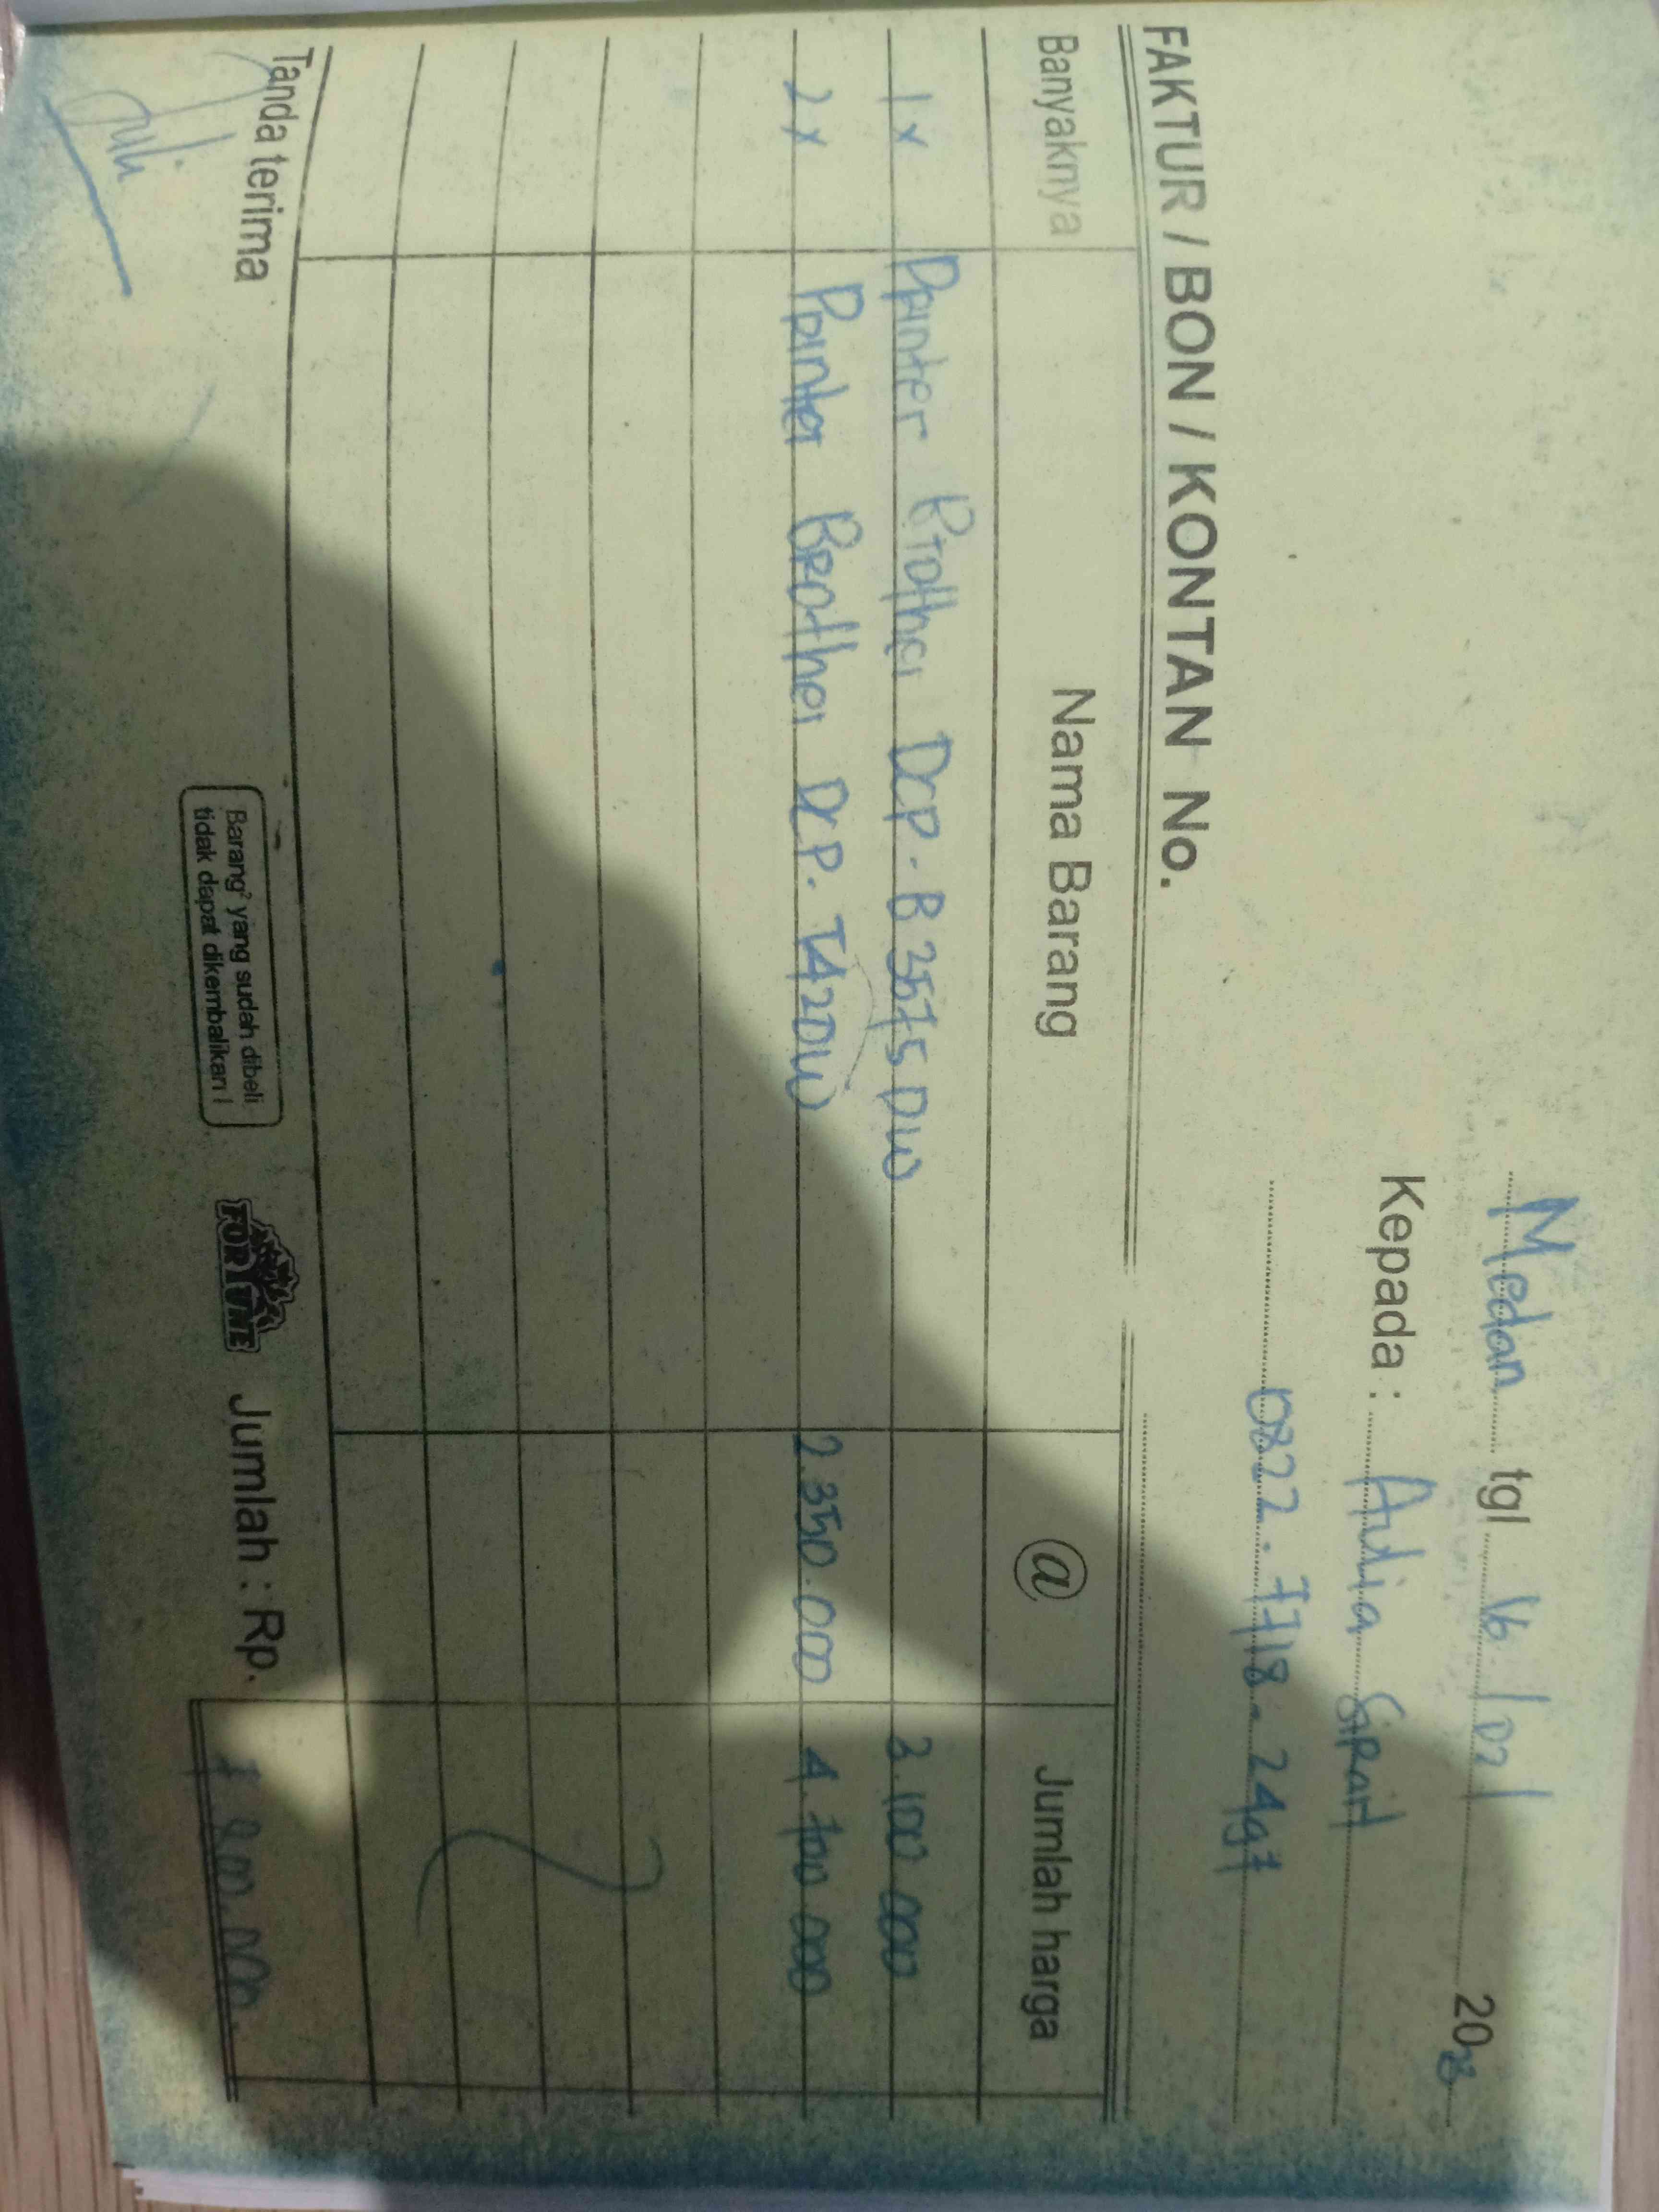 Medan tgl 16 / 02 / 20
Kepada : Aulia
0822.7718.2497
FAKTUR / BON / KONTAN No.
Banyaknya Nama Barang @ Jumlah harga
1x Printer Brother DCP-B 7515DW 3.100 000
2x Printer Brother DCP. T420W 2.350.000 4.700 000
Tanda terima
Barang² yang sudah dibeli
tidak dapat dikembalikan !
FORTUNE
Jumlah : Rp. 7.800.000.